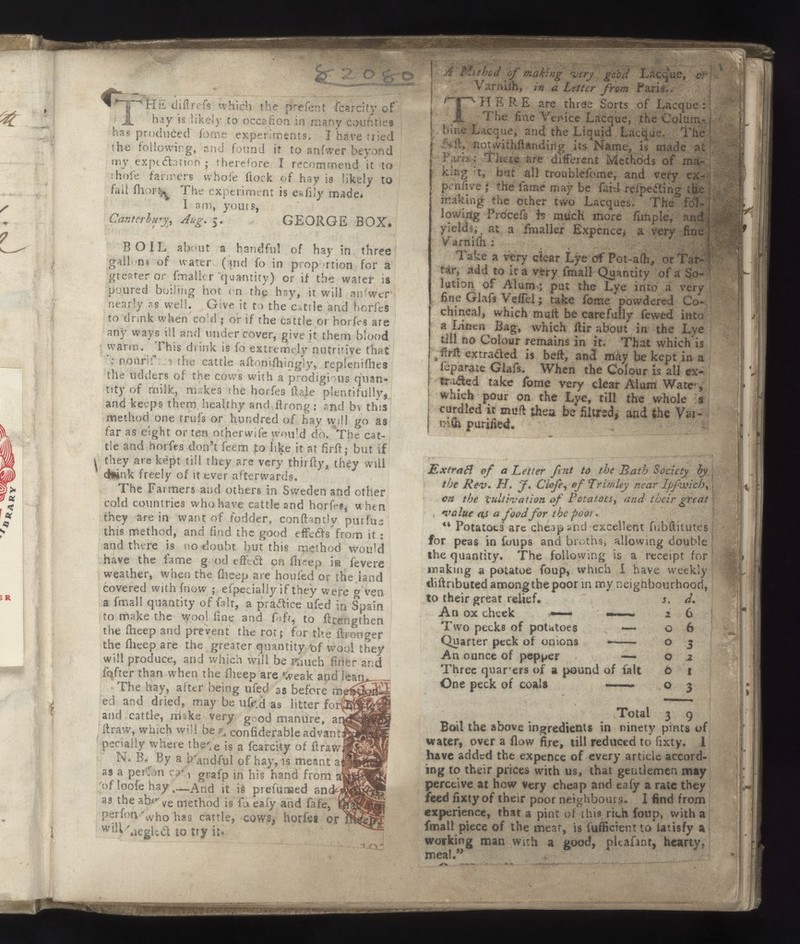 82080
THE diſtreſs which the preſent ſcarcity of
hay is likely to occaſion in many counties
has produced ſome experiments. I have tried
the following, and found it to anſwer beyond
my expectation; therefore I recommend it to
thoſe farmers whoſe ſtock of hay is likely to
fall ſhort. The experiment is eaſily made.
I am, yours,
Canterbury, Aug. 5. GEORGE BOX.
BOIL about a handful of hay in three
gallons of water (and ſo in proportion for a
greater or ſmaller quantity) or if the water is
poured boiling hot on the hay, it will anſwer
nearly as well. Give it to the cattle and horſes
to drink when cold; or if the cattle or horſes are
any ways ill and under cover, give it them blood
warm. This drink is ſo extremely nutritive that
nouriſhes the cattle aſtoniſhingly, repleniſhes
the udders of the cows with a prodigious quan-
tity of milk, makes the horſes ſtale plentifully,
and keeps them healthy and ſtrong: and by this
method one truſs or hundred of hay will go as
far as eight or ten otherwiſe wou'd do. The cat-
tle and horſes don't ſeem to like it at firſt; but if
they are kept till they are very thirſty, they will
drink freely of it ever afterwards.
The Farmers and others in Sweden and other
cold countries who have cattle and horſes, when
they are in want of fodder, conſtantly purſue
this method, and find the good effects from it:
and there is no doubt but this method wou'd
have the ſame good effect on ſheep in ſevere
weather, when the ſheep are houſed or the land
covered with ſnow; eſpecially if they were given
a ſmall quantity of ſalt, a practice uſed in Spain
to make the wool fine and ſoft, to ſtrengthen
the ſheep and prevent the rot; for the ſtronger
the ſheep are the greater quantity of wool they
will produce, and which will be much finer and
ſofter than when the ſheep are weak and lean.
The hay, after being uſed as before
ed and dried, may be uſed as litter for
and cattle, make very good manure, and
ſtraw, which will be a conſiderable advant
pecially where there is a ſcarcity of ſtraw
N. B. By a handful of hay, is meant as
as a perſon can graſp in his hand from a
of looſe hay.—And it is preſumed and
as the above method is ſo eaſy and ſafe,
perſon who has cattle, cows, horſes or ſheep
will neglect to try it.
A Method of making very good Lacque, or
Varniſh, in a Letter from Paris.
THERE are three Sorts of Lacque:
The fine Venice Lacque, the Colum-
bine Lacque, and the Liquid Lacque. The
firſt, notwithſtanding its Name, is made at
Paris: There are different Methods of ma-
king it, but all troubleſome, and very ex-
penſive; the ſame may be ſaid reſpecting the
making the other two Lacques. The fol-
lowing Proceſs is much more ſimple, and
yields, at a ſmaller Expence, a very fine
Varniſh:
Take a very clear Lye of Pot-aſh, or Tar-
tar, add to it a very ſmall Quantity of a So-
lution of Alum; put the Lye into a very
fine Glaſs Veſſel; take ſome powdered Co-
chineal, which muſt be carefully ſewed into
a Linen Bag, which ſtir about in the Lye
till no Colour remains in it. That which is
firſt extracted is beſt, and may be kept in a
ſeparate Glaſs. When the Colour is all ex-
tracted take ſome very clear Alum Water,
which pour on the Lye, till the whole is
curdled it muſt then be filtred, and the Var-
niſh purified.
Extract of a Letter ſent to the Bath Society by
the Rev. H. J. Cloſe, of Trimley near Ipſwich,
on the cultivation of Potatoes, and their great
value as a food for the poor.
“ Potatoes are cheap and excellent ſubſtitutes
for peas in ſoups and broths, allowing double
the quantity. The following is a receipt for
making a potatoe ſoup, which I have weekly
diſtributed among the poor in my neighbourhood,
to their great relief. s. d.
An ox cheek — — 2 6
Two pecks of potatoes — 0 6
Quarter peck of onions — 0 3
An ounce of pepper — 0 2
Three quarters of a pound of ſalt 0 1
One peck of coals — 0 3
Total 3 9
Boil the above ingredients in ninety pints of
water, over a ſlow fire, till reduced to ſixty. I
have added the expence of every article accord-
ing to their prices with us, that gentlemen may
perceive at how very cheap and eaſy a rate they
feed ſixty of their poor neighbours. I find from
experience, that a pint of this rich ſoup, with a
ſmall piece of the meat, is ſufficient to ſatisfy a
working man with a good, pleaſant, hearty,
meal.”